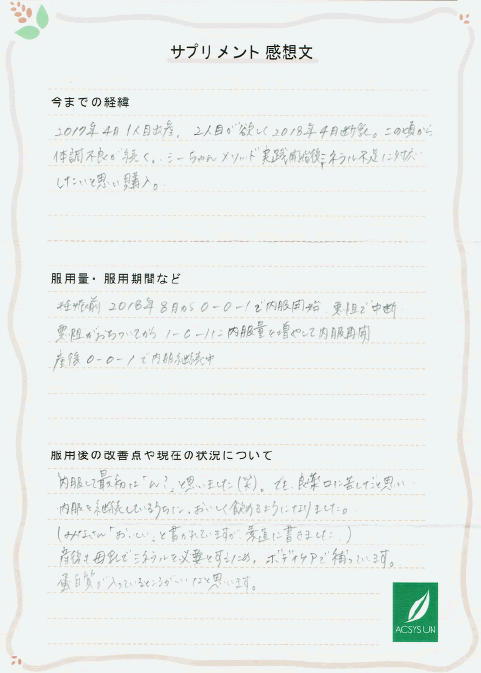 サプリメント感想文
今までの経緯
2017年4月1人目出産。2人目が欲しく2018年4月断乳。この頃から
体調不良が続く。ミーちゃんメソッド実践開始後ミネラル不足に対応
したいと思い購入。
服用量・服用期間など
妊娠前 2018年8月から0-0-1で内服開始 悪阻で中断
悪阻がおちついてから1-0-1に内服量を増やして内服再開
産後0-0-1で内服継続中
服用後の改善点や現在の状況について
内服して最初は「ん?」と思いました(笑)。でも、良薬口に苦しだと思い
内服を継続しているうちに、おいしく飲めるようになりました。
(みなさん「おいしい」と書かれていますが素直に書きました。)
産後も母乳でミネラルを必要とするため、ボディケアで補っています。
蛋白質が入っているところがいいなと思います。
ACSYS UN